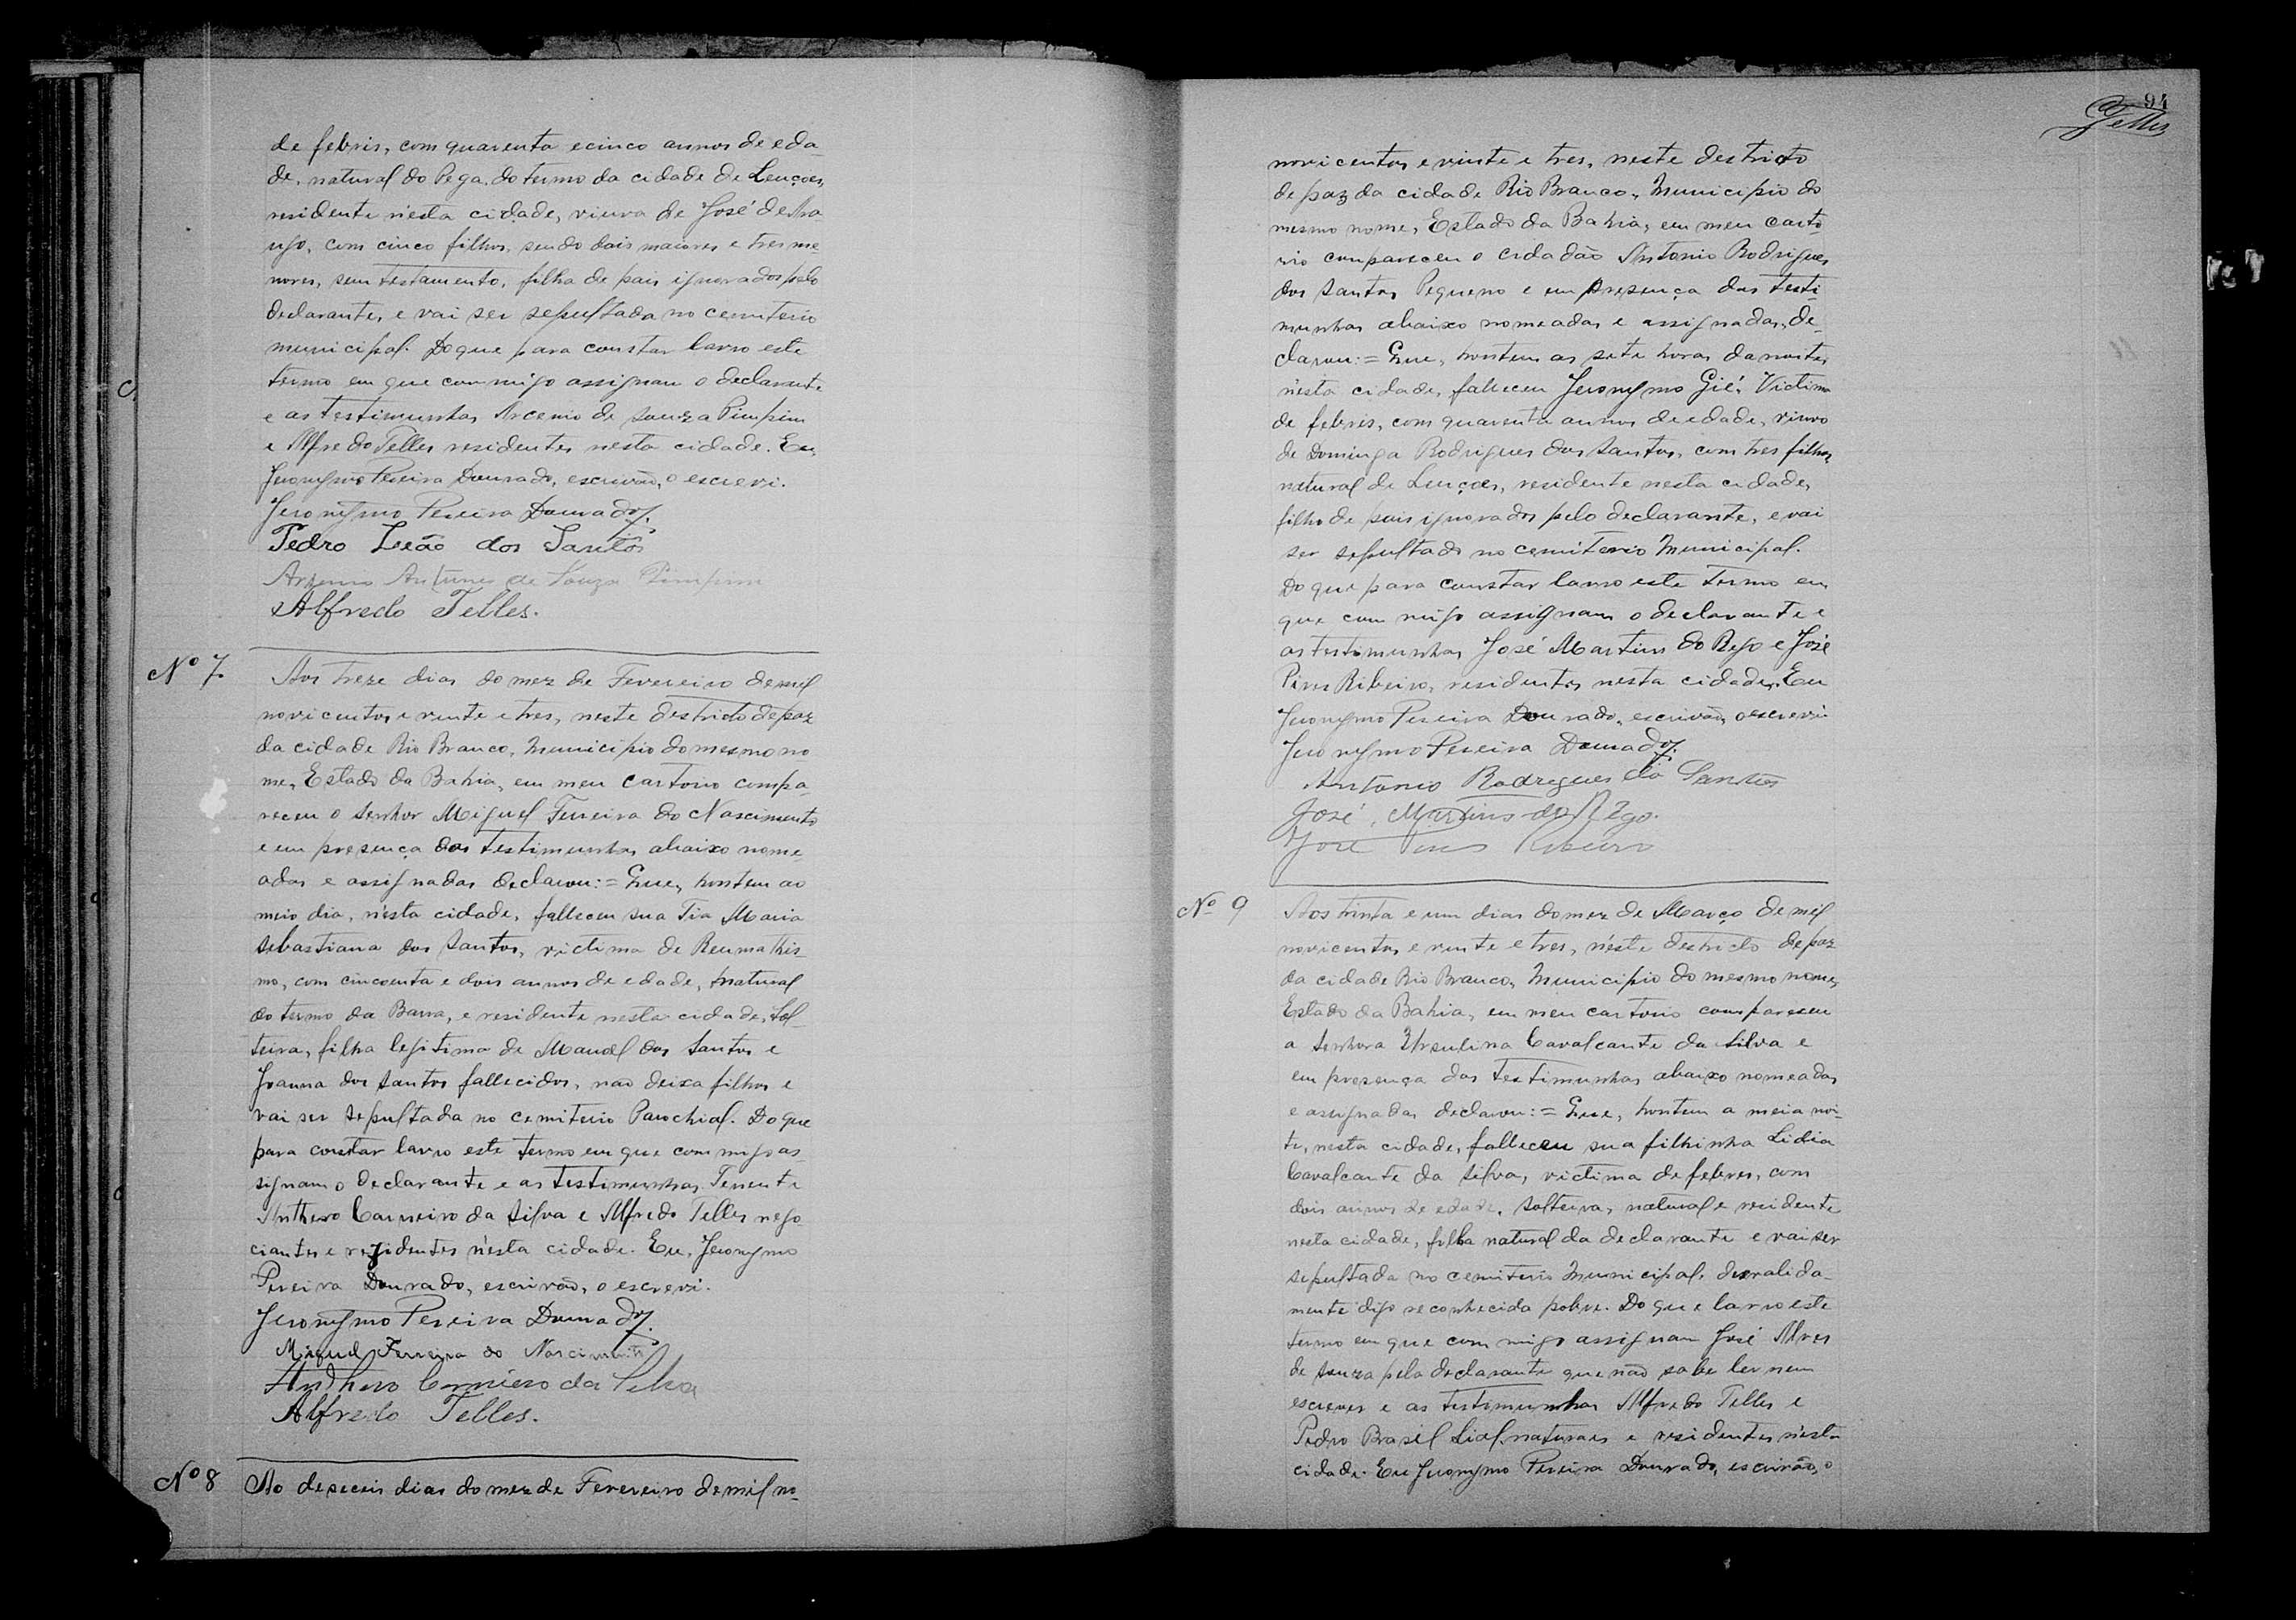 de febris, com quarenta e cinco annos de eda-
de, natural do Pega, do termo da cidade de Lençoes,
residente n'esta cidade, viuva de José de Ara
ujo, com cinco filhos, sendo dois maiores e tres me-
nores, sem testamento, filha de pais ignorados pelo
declarante, e vai ser sepultada no cemiterio
municipal. Do que para constar lavro este
termo em que commigo assignam o declarante
e as testimunhas Arcenio de Souza Pimpim
e Alfredo Telles residentes nesta cidade. Eu,
Jeronymo Pereira Dourado, escrivão, o escrevi.
Jeronymo Pereira Dourado.
Pedro Leão dos Santos
Arsenio Antunes de Souza Pimpim
Alfredo Telles.
Nº 7. Aos treze dias do mez de Fevereiro de mil
novicentos e vinte e tres, neste destricto de paz
da cidade Rio Branco, Municipio do mesmo no
me, Estado da Bahia, em meu cartorio compa-
receu o Senhor Miguel Ferreira do Nascimento
e em presença das testimunhas abaixo nome-
adas e assignadas declarou:= Que, hontem ao
meio dia, n'esta cidade, falleceu sua Tia Maria
Sebastiana dos Santos, victima de Reumathis-
mo, com cincoenta e dois annos de edade, natural
do termo da Barra, e residente nesta cidade, Sol-
teira, filha legitima de Manoel dos Santos e
Joanna dos Santos fallecidos, não deixa filhos e
vai ser sepultada no cemiterio Parochial. Do que
para constar lavro este termo em que commigo as-
signam o declarante e as testimunhas Tenente
Anthero Carneiro da Silva e Alfredo Telles nego-
ciantes e rezidentes n'esta cidade. Eu, Jeronymo
Pereira Dourado, escrivão, o escrevi.
Jeronymo Pereira Dourado.
Miguel Ferreira do Nascimento
Anthero Carneiro da Silva
Alfredo Telles.
Nº 8 Ao deseceis dias do mez de Fevereiro de mil no-
94
Telles
novicentos e vinte e tres, neste destricto
de paz da cidade Rio Branco, Municipio do
mesmo nome, Estado da Bahia, em meu carto-
rio compareceu o cidadão Antonio Rodrigues
dos Santos Pequeno e em presença das testi-
munhas abaixo nomeadas e assignadas, de-
clarou:= Que, hontem as sete horas da noite,
n'esta cidade, falleceu Jeronymo Gié, Victima
de febris, com quarenta annos de edade, viuvo
de Dominga Rodrigues dos Santos, com tres filhos,
natural de Lençoes, residente nesta cidade,
filho de pais ignorados pelo declarante, e vai
ser sepultado no cemiterio Municipal.
Do que para constar lavro este termo em
que commigo assignam o declarante e
as testimunhas José Martins do Rego e José
Pires Ribeiro, residentes nesta cidade. Eu
Jeronymo Pereira Dourado, escrivão, o escrevi
Jeronymo Pereira Dourado.
Antonio Rodrigues do Santos
José Martins do Rego.
José Pires Ribeiro
Nº 9 Aos trinta e um dias do mez de Março de mil
novicentos e vinte e tres, n'este destricto de paz
da cidade Rio Branco, Municipio do mesmo nome,
Estado da Bahia, em meu cartorio compareceu
a Senhora Ursulina Cavalcante da Silva e
em presença das testimunhas abaixo nomeadas
e assignadas declarou:= Que, hontem a meia noi-
te, nesta cidade, falleceu sua filhinha Lidia
Cavalcante da Silva, victima de febres, com
dois annos de edade, solteira, natural e residente
nesta cidade, filha natural da declarante e vai ser
sepultada no cemiterio Municipal, desvalida-
mente digo reconhecida pobre. Do que lavro este
termo em que commigo assignam José Alves
de Souza pela declarante que não sabe ler nem
escrever e as testimunhas Alfredo Telles e
Pedro Brasil Lial, naturaes e residentes n'esta
cidade. Eu Jeronymo Pereira Dourado, escrivão, o